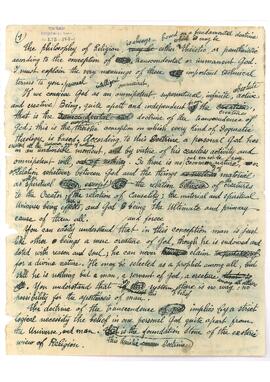 (1)
The philosophy of Religion is always either theistic or pantheistic
according to the conception of transcendental or immanent God.
I must explain the very meanings of these important technical
terms to you.
If we conceive God as an omnipotent, infinite, active
and creative Being, quite apart and independent of the
that is the doctrine of the transcendence of
God; this is the theistic conception in which every kind of Dogmatic
Theology is based. According to this doctrine a personal God has
in an moment, by virtue of his creative activity and
omnipotent will, of nothing. So there is no
Relation whatever between God and the things material
or spiritual, except the relation of creatures
to the Creator or the relation of causality; the material and spiritual
Universe being effect, and God being the Ultimate and primary
cause of them all. and force
You can easily understand that in this conception man is just
like other beings a mere creature of God, though he is endowed and
with reason and soul; he can never claim
for a divine nature. He may be selected as a prophet among all, but
still he is nothing but a man, a servant of God, a creature.
You understand that in this system there is no
possibility for the apotheosis of man.
The doctrine of the transcendence implies by a strict
logical necessity the belief in one personal God, quite apart from
the Universe, and man. is the foundation stone of the exoteric
view of Religion. This Doctrine